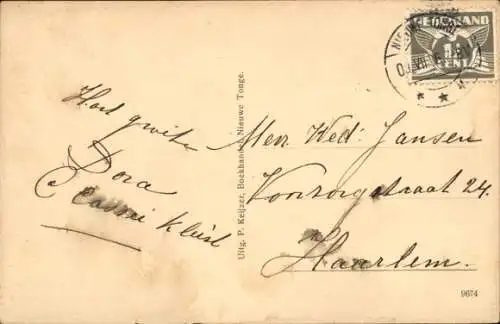 Hart. groeten
Dora
Uitg. P. Keijzer, Boekhandel, Nieuwe Tonge.
NEDERLAND
1½
CENT
NIEUWE
Mevr. Wed: Jansen
Voorzorgstraat 24.
Haarlem.
9674